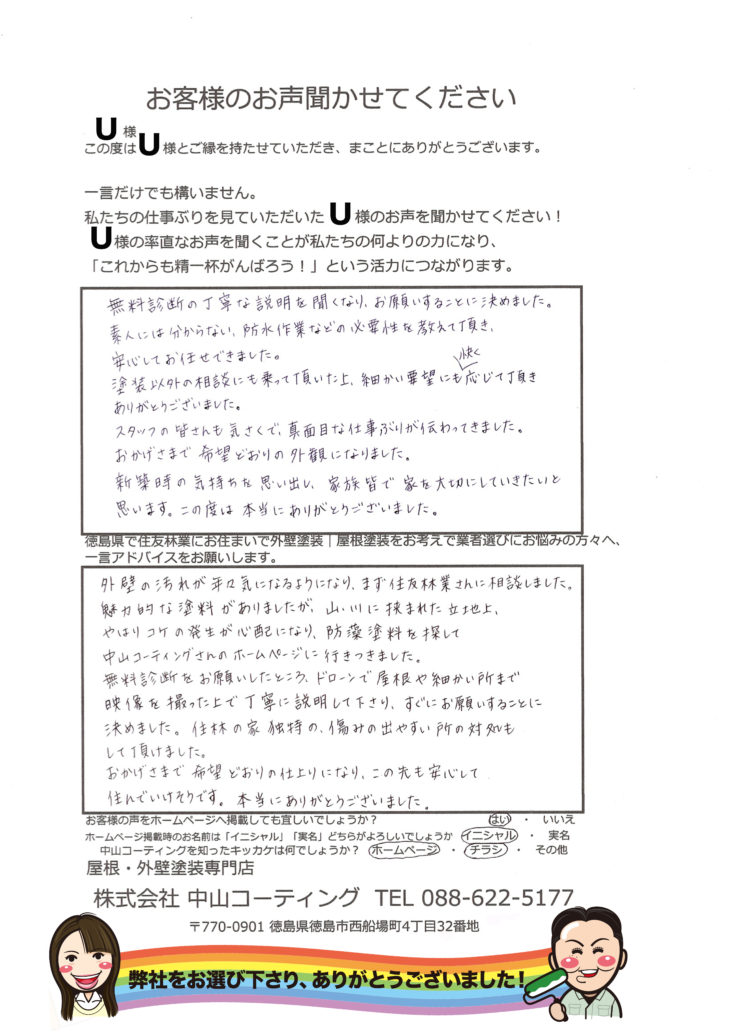 お客様のお声聞かせてください
U 様
この度は U 様とご縁を持たせていただき、まことにありがとうございます。
一言だけでも構いません。
私たちの仕事ぶりを見ていただいた U 様のお声を聞かせてください！
U 様の率直なお声を聞くことが私たちの何よりの力になり、
「これからも精一杯がんばろう！」という活力につながります。
無料診断の丁寧な説明を聞くなり、お願いすることに決めました。
素人には分からない、防水作業などの必要性を教えて頂き、
安心してお任せできました。
塗装以外の相談にも乗って頂いた上、細かい要望にも快く応じて頂き
ありがとうございました。
スタッフの皆さんも気さくで、真面目な仕事ぶりが伝わってきました。
おかげさまで希望どおりの外観になりました。
新築時の気持ちを思い出し、家族皆で家を大切にしていきたいと
思います。この度は本当にありがとうございました。
徳島県で住友林業にお住まいで外壁塗装｜屋根塗装をお考えで業者選びにお悩みの方々へ、
一言アドバイスをお願いします。
外壁の汚れが年々気になるようになり、まず住友林業さんに相談しました。
魅力的な塗料がありましたが、山・川に挟まれた立地上、
やはりコケの発生が心配になり、防藻塗料を探して
中山コーティングさんのホームページに行きつきました。
無料診断をお願いしたところ、ドローンで屋根や細かい所まで
映像を撮った上で丁寧に説明して下さり、すぐにお願いすることに
決めました。住林の家独特の、傷みの出やすい所の対処も
して頂けました。
おかげさまで希望どおりの仕上りになり、この先も安心して
住んでいけそうです。本当にありがとうございました。
お客様の声をホームページへ掲載しても宜しいでしょうか？ はい ・ いいえ
ホームページ掲載時のお名前は「イニシャル」「実名」どちらがよろしいでしょうか イニシャル ・ 実名
中山コーティングを知ったキッカケは何でしょうか？ ホームページ ・ チラシ ・ その他
屋根・外壁塗装専門店
株式会社 中山コーティング TEL 088-622-5177
〒770-0901 徳島県徳島市西船場町4丁目32番地
弊社をお選び下さり、ありがとうございました！